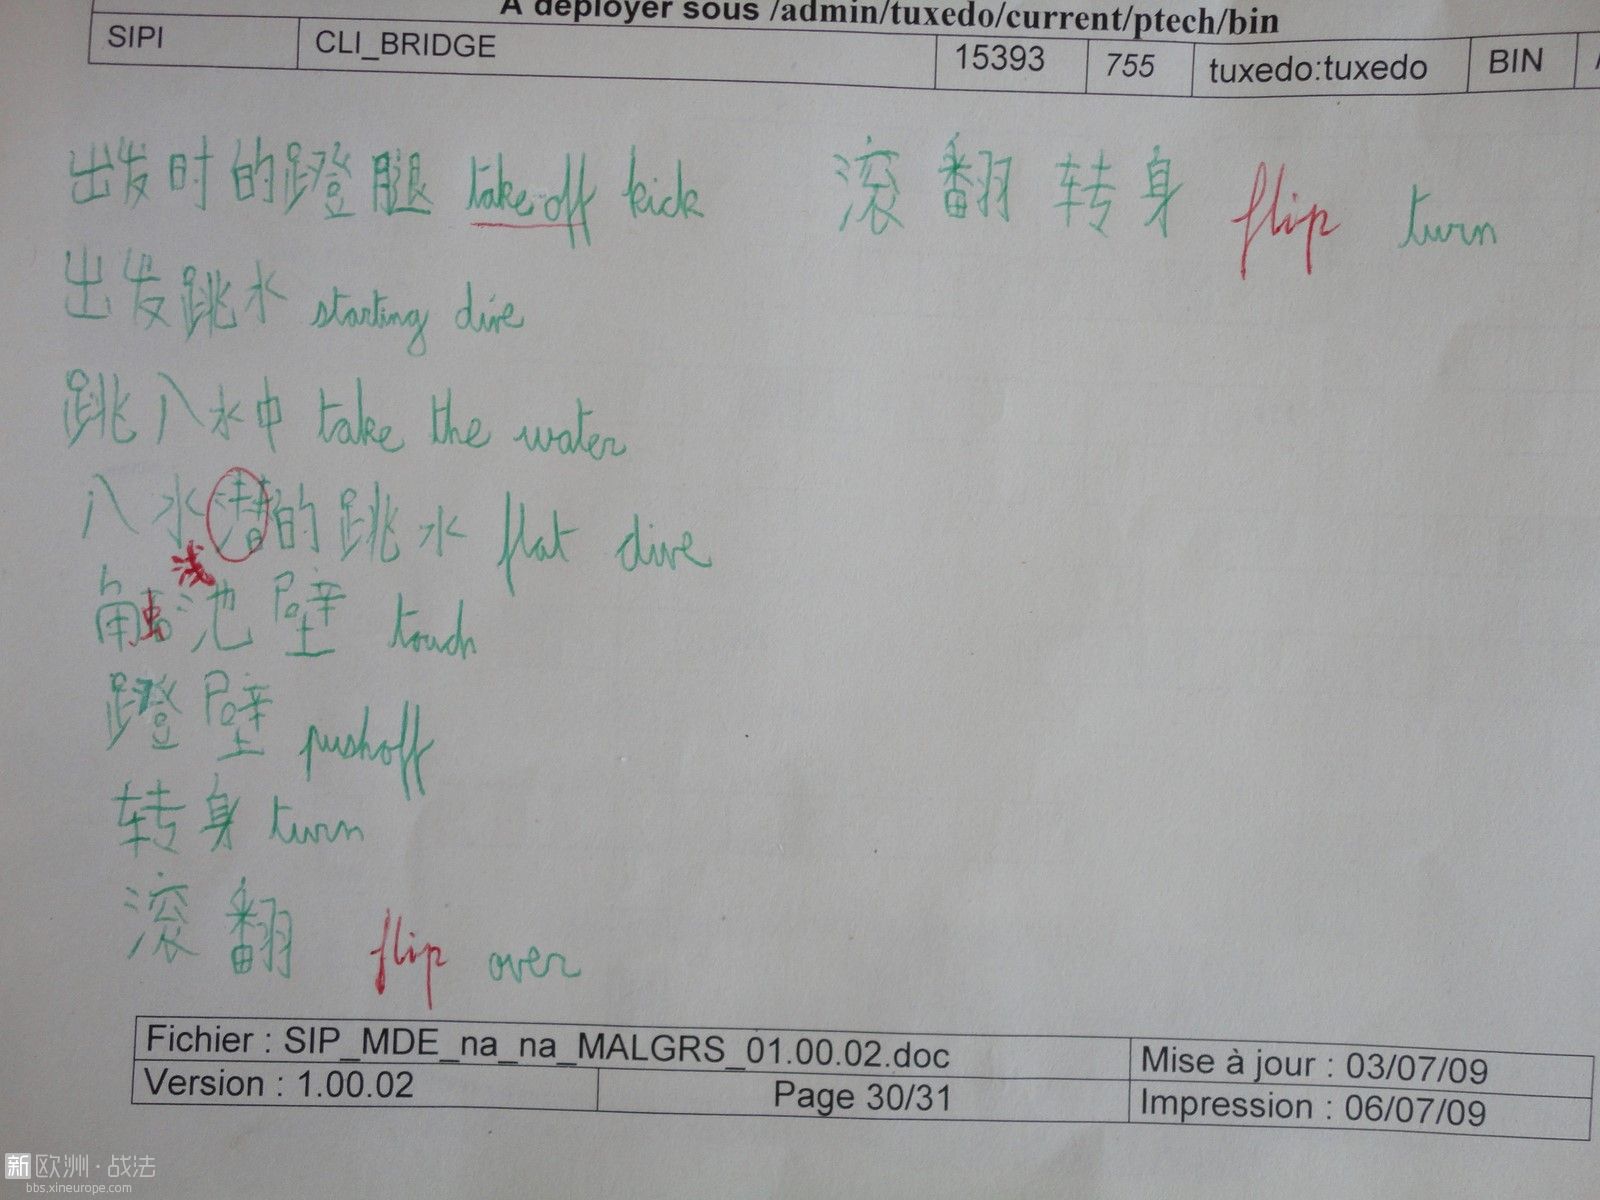 A déployer sous /admin/tuxedo/current/ptech/bin
SIPI CLI_BRIDGE 15393 755 tuxedo:tuxedo BIN
出发时的蹬腿 take-off kick 滚翻转身 flip turn
出发跳水 starting dive
跳八水中 take the water
八水的跳水 flat dive
浅
触池壁 touch
蹬壁 pushoff
转身 turn
滚翻 flip over
Fichier : SIP_MDE_na_na_MALGRS_01.00.02.doc Mise à jour : 03/07/09
Version : 1.00.02 Page 30/31 Impression : 06/07/09
新欧洲·战法
bbs.xineurope.com